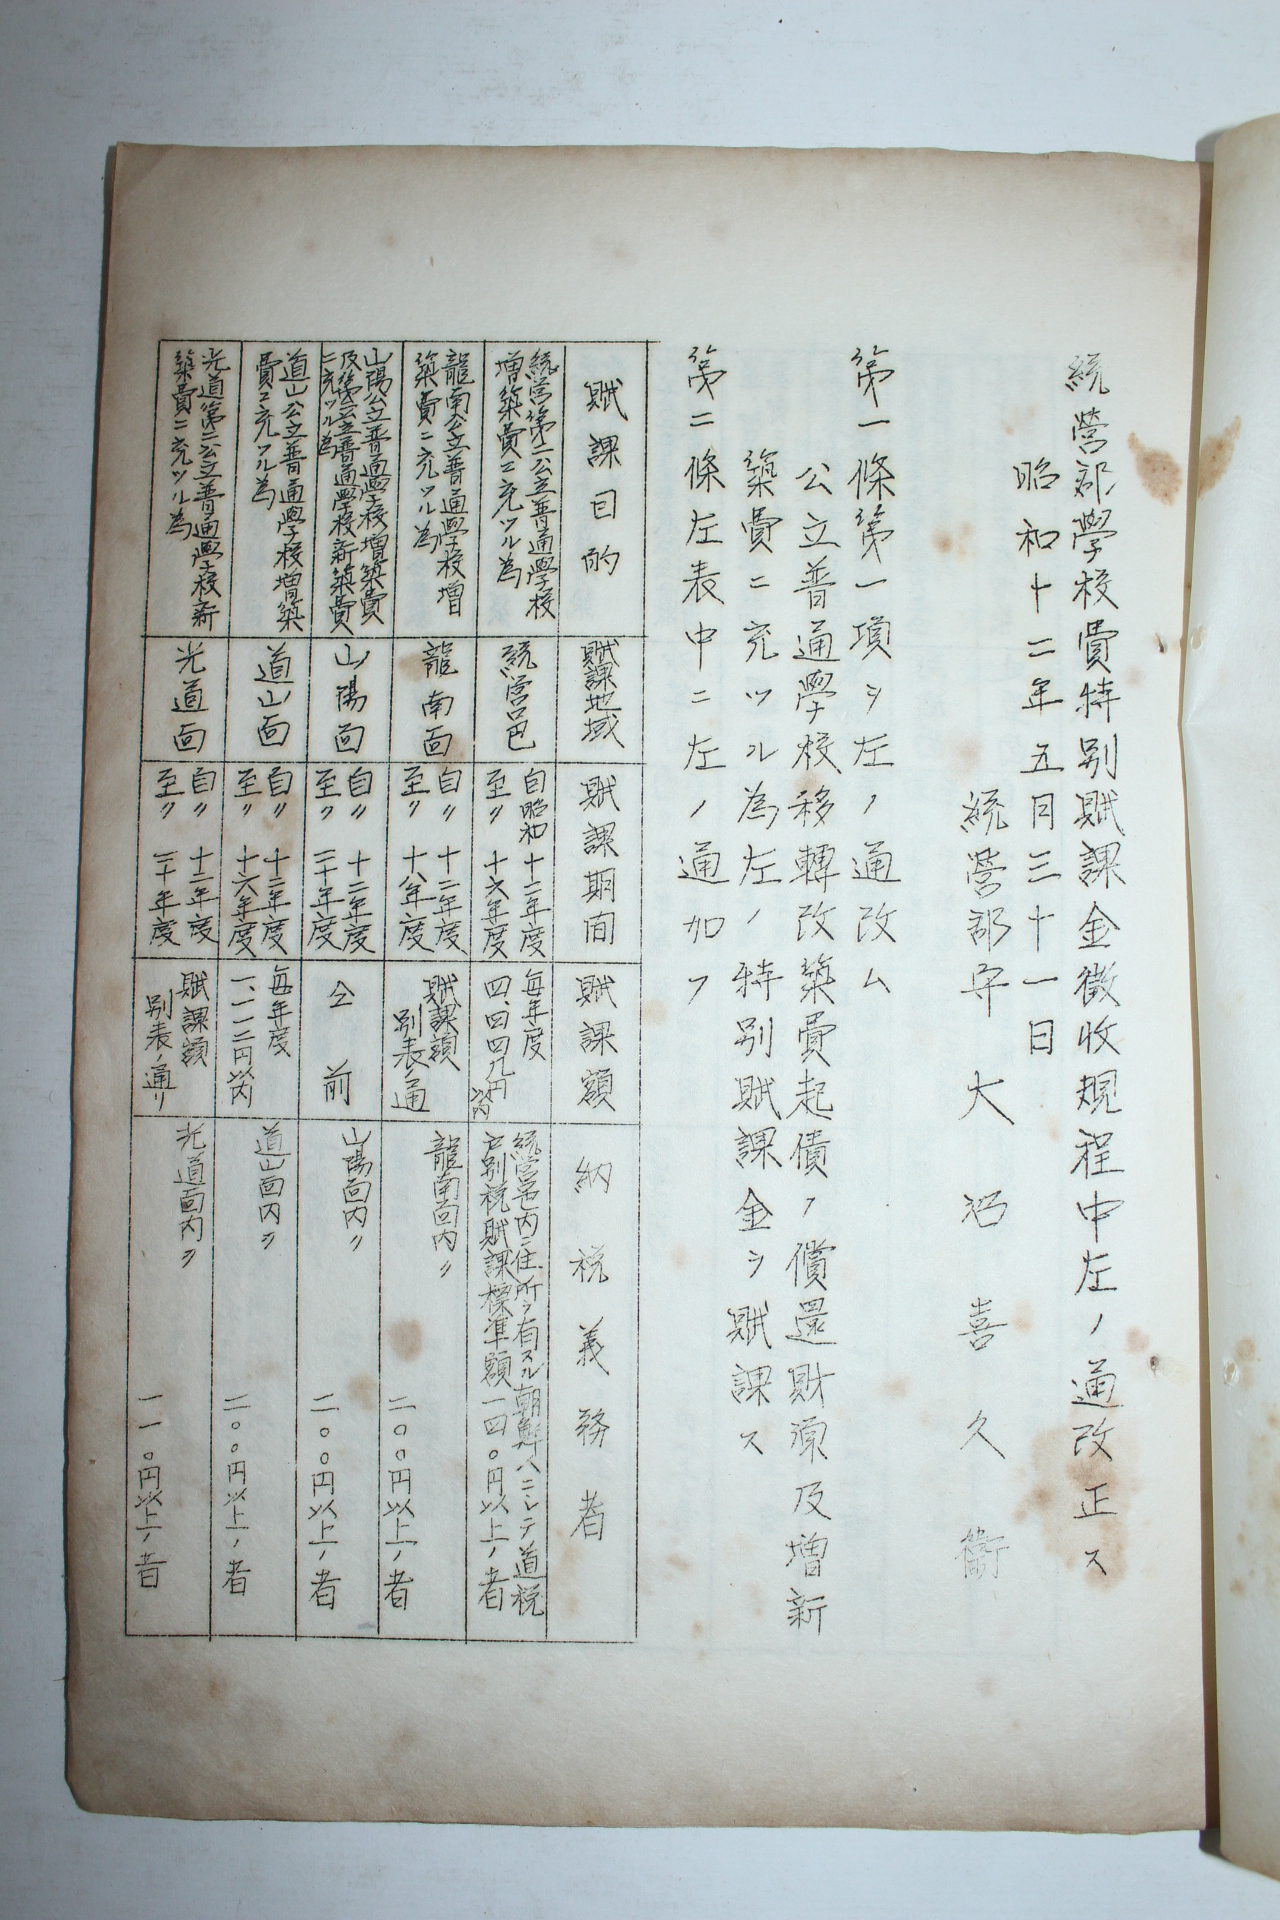 統營郡學校費特別賦課金徴收規程中左ノ通改正ス
昭和十二年五月三十一日
統營郡守 大沼喜久衞
第一條第一項ヲ左ノ通改ム
公立普通學校移轉改築費起債ノ償還財源及増新
築費ニ充ツル為左ノ特別賦課金ヲ賦課ス
第二條左表中ニ左ノ通加フ
賦課目的
賦課地域
賦課期間
賦課額
納税義務者
統営第二公立普通學校
増築費ニ充ツル為
統営邑
自昭和十二年度
至〃十六年度
毎年度
四、四四九円以内
統営邑内ニ住所ヲ有スル朝鮮人ニシテ道税
戸別税賦課標準額一四〇円以上ノ者
龍南公立普通學校増
築費ニ充ツル為
龍南面
自〃十二年度
至〃十八年度
賦課額
別表ノ通
龍南面内〃
二〇〇円以上ノ者
山陽公立普通學校増築費
及第二公立普通學校新築費
ニ充ツル為
山陽面
自〃十二年度
至〃二十年度
仝前
山陽面内〃
二〇〇円以上ノ者
道山公立普通學校増築
費ニ充ツル為
道山面
自〃十二年度
至〃十六年度
毎年度
一、一一二円以内
道山面内〃
二〇〇円以上ノ者
光道第二公立普通學校新
築費ニ充ツル為
光道面
自〃十二年度
至〃二十年度
賦課額
別表ノ通リ
光道面内〃
一一〇円以上ノ者